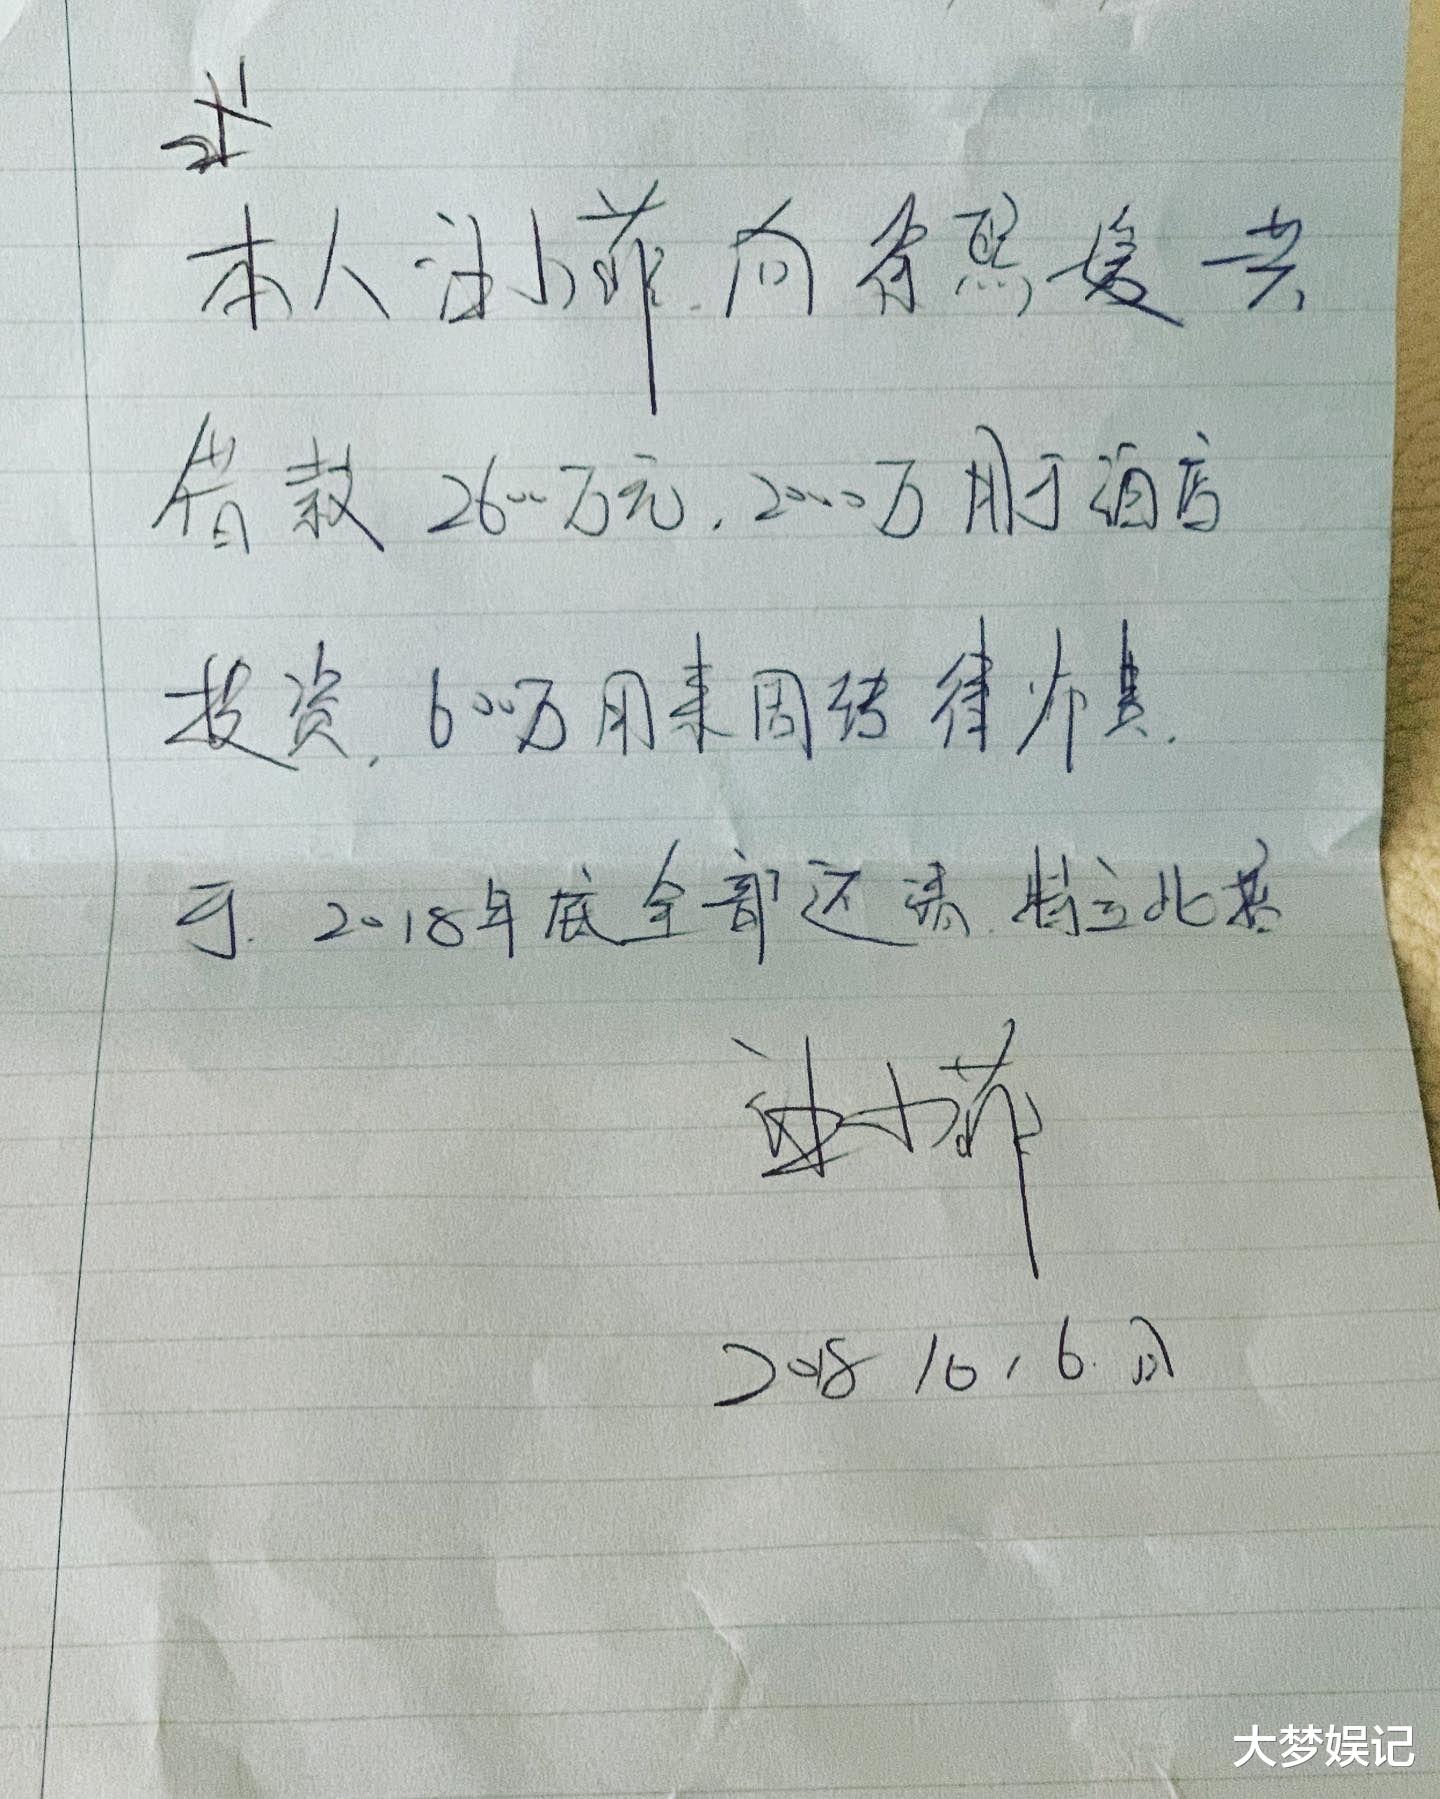 本人汪小菲向徐熙媛共
借款2600万元.2000万用于酒店
投资.600万用来周转律师费.
于.2018年底全部还清.特立此据
汪小菲
2018 10,6.日
大梦娱记